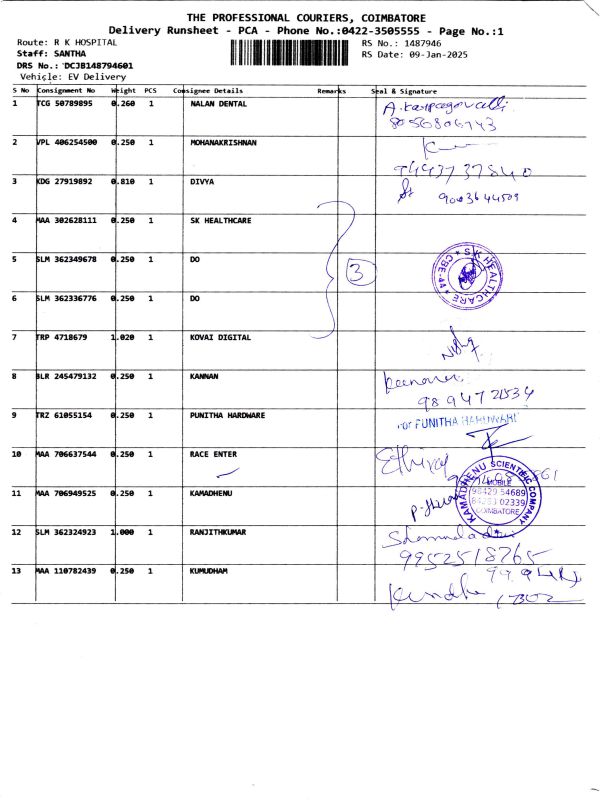 THE PROFESSIONAL COURIERS, COIMBATORE
Delivery Runsheet - PCA - Phone No.:0422-3505555 - Page No.:1
Route: R K HOSPITAL RS No.: 1487946
Staff: SANTHA RS Date: 09-Jan-2025
DRS No.: DCJB148794601
Vehicle: EV Delivery
S No Consignment No Weight PCS Consignee Details Remarks Seal & Signature
1 TCG 50789895 0.260 1 NALAN DENTAL
8056806743
2 VPL 406254500 0.250 1 MOHANAKRISHNAN
9443737840
3 KDG 27919892 0.810 1 DIVYA
9003644509
4 MAA 302628111 0.250 1 SK HEALTHCARE
5 SLM 362349678 0.250 1 DO 3 SK HEALTHCARE CBE-44
6 SLM 362336776 0.250 1 DO
7 TRP 4718679 1.020 1 KOVAI DIGITAL
8 BLR 245479132 0.250 1 KANNAN
9 TRZ 61055154 0.250 1 PUNITHA HARDWARE For PUNITHA HARDWARE
10 MAA 706637544 0.250 1 RACE ENTER Ethiraj
11 MAA 706949525 0.250 1 KAMADHENU KAMADHENU SCIENTIFIC COMPANY
MOBILE
98429 54689
02339
COIMBATORE
12 SLM 362324923 1.000 1 RANJITHKUMAR
9952518765
13 MAA 110782439 0.250 1 KUMUDHAM